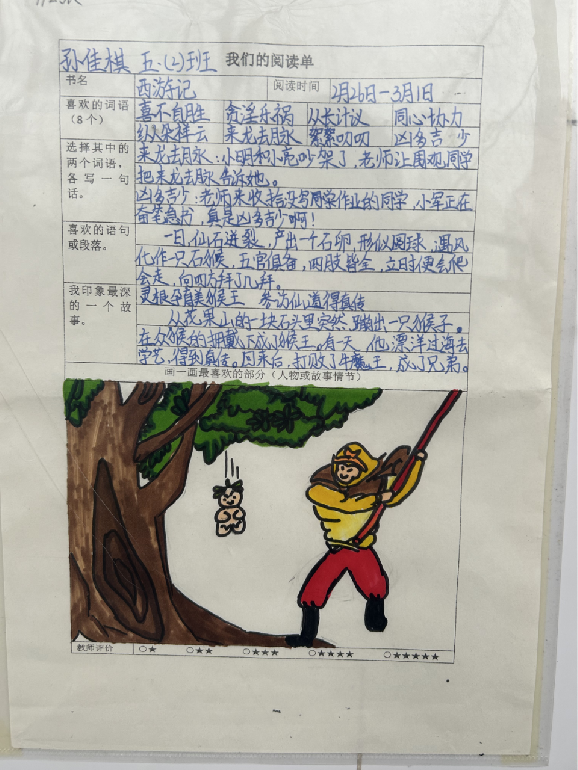 孙佳棋 五.(2)班 我们的阅读单
书名 西游记 阅读时间 2月26日－3月1日
喜欢的词语(8个) 喜不自胜 贪淫乐祸 从长计议 同心协力
纵人朵祥云 来龙去脉 絮絮叨叨 凶多吉少
选择其中的两个词语，各写一句话。
来龙去脉：小明和小亮吵架了，老师让围观同学
把来龙去脉告诉她。
凶多吉少：老师来收拾没写同学作业的同学，小军正在
奋笔急抄，真是凶多吉少啊！
喜欢的语句或段落。
一日，仙石迸裂，产出一个石卵，形似圆球，遇风
化作一只石猴，五官俱备，四肢皆全，立时便会爬
会走，向四方拜了几拜。
我印象最深的一个故事。
灵根孕育美猴王 参访仙道得真传
从花果山的一块石头里突然，蹦出一只猴子。
在众猴的拥戴下成了猴王。有天，他，漂洋过海去
学艺，得到真传。回来后，打败了牛魔王，成了兄弟。
画一画最喜欢的部分（人物或故事情节）
教师评价 ○★ ○★★ ○★★★ ○★★★★ ○★★★★★